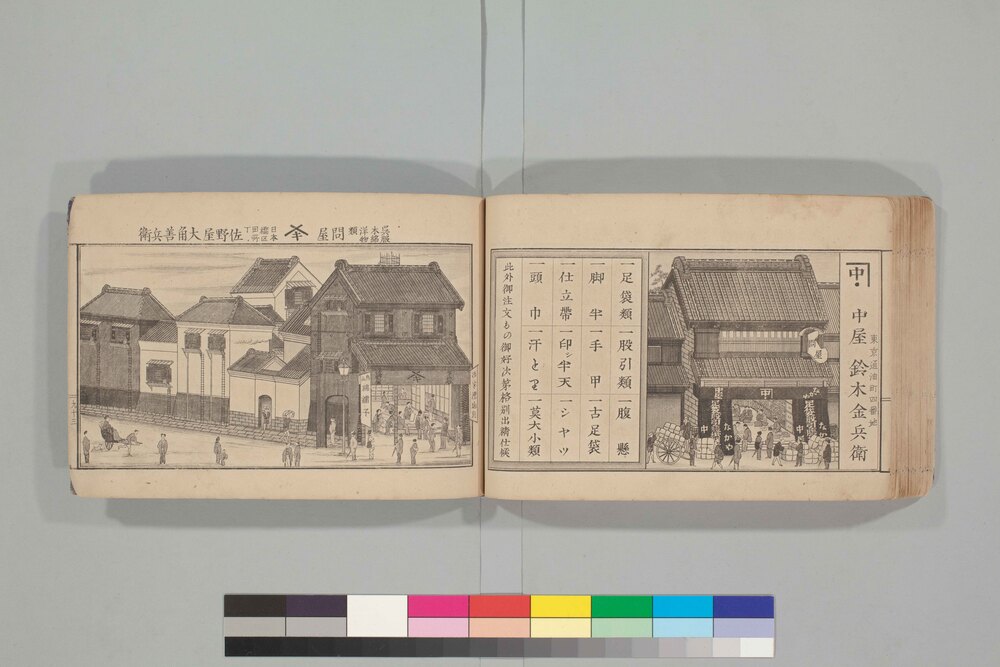 中
東京通油町四番地
中屋 鈴木金兵衛
一足袋類 一股引類 一腹懸
一脚半 一手甲 一古足袋
一仕立帯 一印シ半天 一シヤツ
一頭巾 一汗とり 一莫大小類
此外御注文もの御好次第格別出精仕候
中
たびや
呉服
木綿
洋物
類
問屋
日本
橋区
田所
丁
佐野屋 大角善兵衛